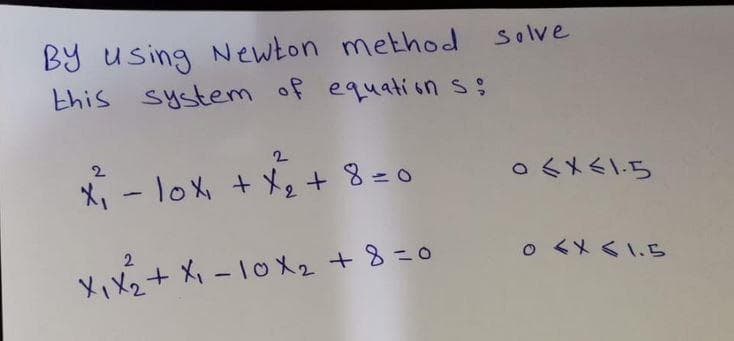 By using Newton method solve
this system of equations:
x₁² - 10x₁ + x₂² + 8 = 0 0 ≤ x ≤ 1.5
x₁x₂² + x₁ - 10x₂ + 8 = 0 0 ≤ x ≤ 1.5